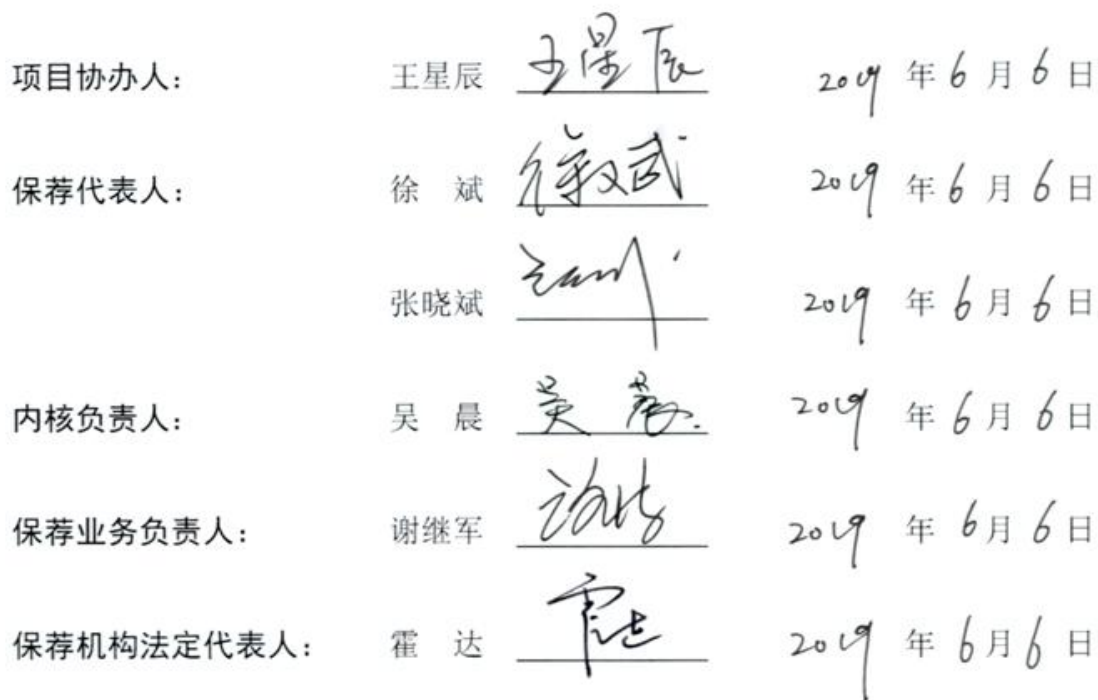 项目协办人： 王星辰 王星辰 2019 年 6 月 6 日
保荐代表人： 徐 斌 2019 年 6 月 6 日
张晓斌 2019 年 6 月 6 日
内核负责人： 吴 晨 吴晨 2019 年 6 月 6 日
保荐业务负责人： 谢继军 2019 年 6 月 6 日
保荐机构法定代表人： 霍 达 霍达 2019 年 6 月 6 日